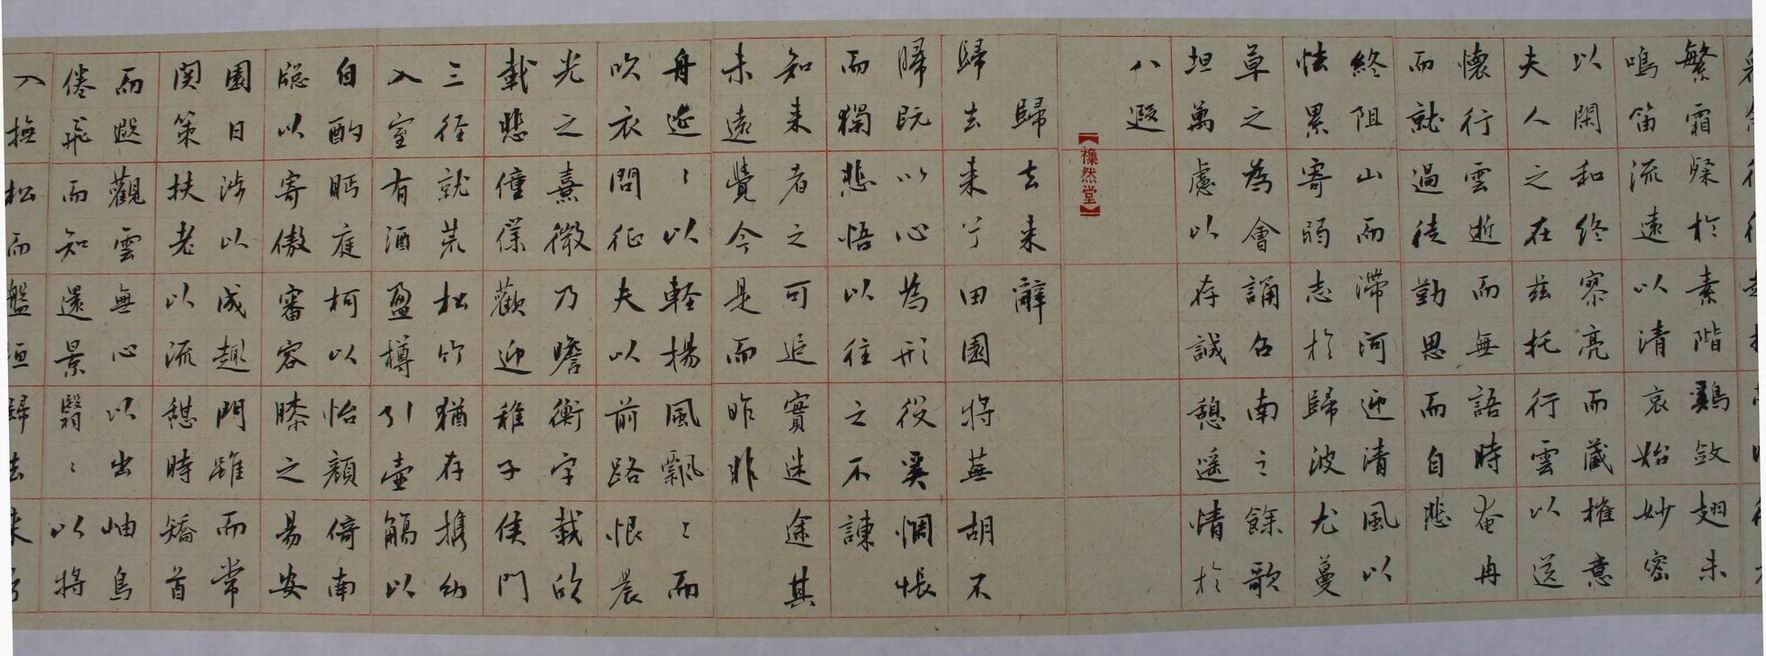 繁霜粲於素階鷄斂翅未
鳴笛流遠以清哀始妙密
以閑和終寥亮而藏摧意
夫人之在茲托行雲以送
懷行雲逝而無語時奄冉
而就過徒勤思而自悲
終阻山而滯河迎清風以
怯累寄弱志於歸波尤蔓
草之為會誦召南之餘歌
坦萬慮以存誠憩遥情於
八遐
【襍然堂】
歸去来辭
歸去来兮田園將蕪胡不
歸既以心為形役奚惆悵
而獨悲悟以往之不諫
知来者之可追實迷途其
未遠覺今是而昨非
舟遥〻以輕揚風飄〻而
吹衣問征夫以前路恨晨
光之熹微乃瞻衡宇載欣
載悲僮僕歡迎稚子候門
三徑就荒松竹猶存携幼
入室有酒盈樽引壺觴以
自酌眄庭柯以怡顏倚南
牕以寄傲審容膝之易安
園日涉以成趣門雖而常
関策扶老以流憇時矯首
而遐觀雲無心以出岫鳥
倦飛而知還景翳〻以將
入撫松而盤桓歸去来兮